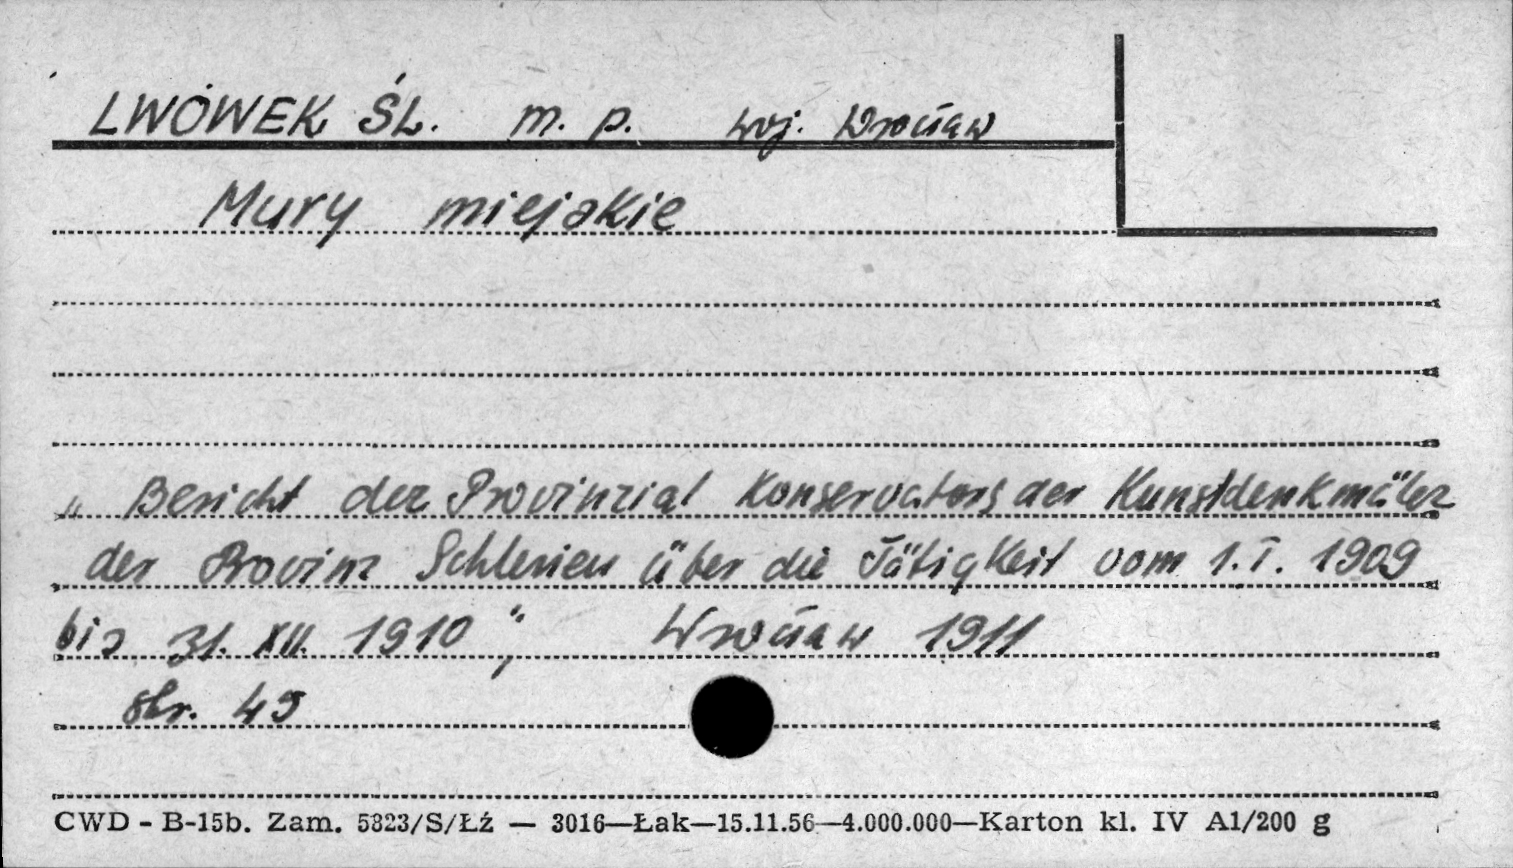 LWÓWEK ŚL. m. p. woj. Wrocław
Mury miejskie
„Bericht des Provinzial Konservators der Kunstdenkmäler
der Provinz Schlesien über die Tätigkeit vom 1.I. 1909
bis 31. XII. 1910", Wrocław 1911
str. 49
CWD - B-15b. Zam. 5823/S/Łź — 3016—Łak—15.11.56—4.000.000—Karton kl. IV A1/200 g